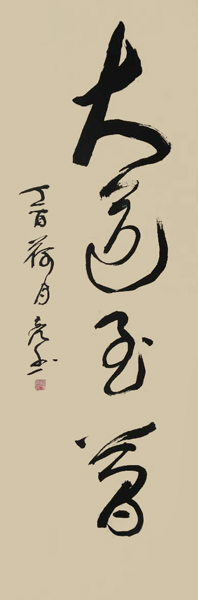 大道至简
丁酉荷月